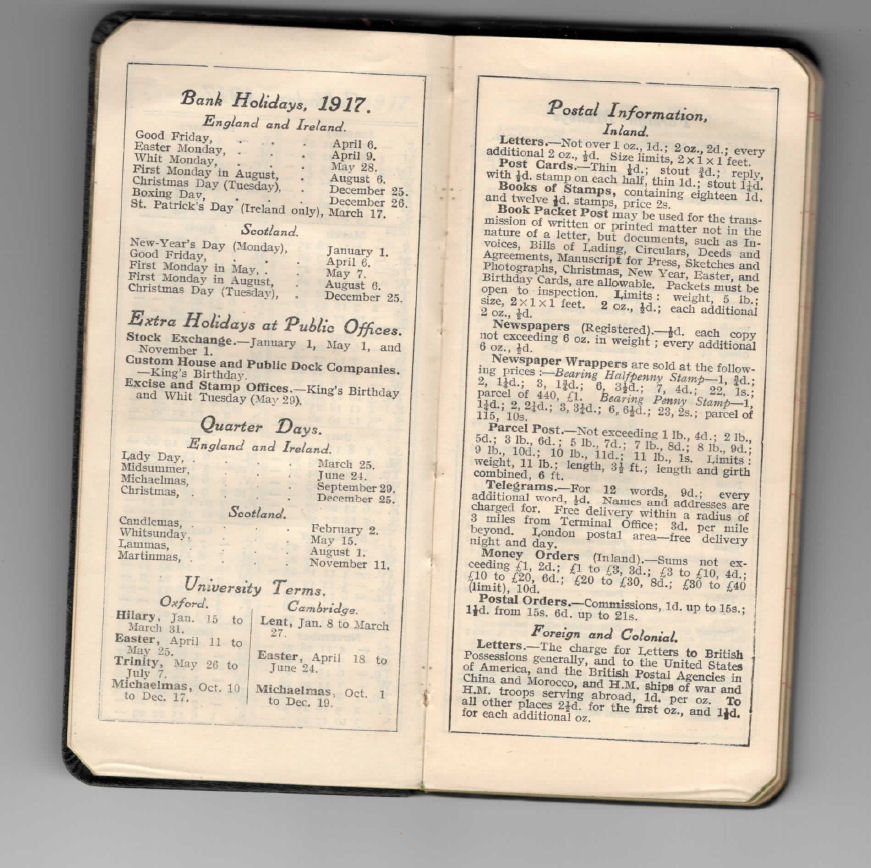 Bank Holidays, 1917.
England and Ireland.
Good Friday, . . . April 6.
Easter Monday, . . . April 9.
Whit Monday, . . . May 28.
First Monday in August, . August 6.
Christmas Day (Tuesday), . December 25.
Boxing Day, . . . December 26.
St. Patrick's Day (Ireland only), March 17.
Scotland.
New-Year's Day (Monday), January 1.
Good Friday, . . . April 6.
First Monday in May, . . May 7.
First Monday in August, . August 6.
Christmas Day (Tuesday), . December 25.
Extra Holidays at Public Offices.
Stock Exchange.—January 1, May 1, and
November 1.
Custom House and Public Dock Companies.
—King's Birthday.
Excise and Stamp Offices.—King's Birthday
and Whit Tuesday (May 29).
Quarter Days.
England and Ireland.
Lady Day, . . . March 25.
Midsummer, . . . June 24.
Michaelmas, . . . September 29.
Christmas, . . . December 25.
Scotland.
Candlemas, . . . February 2.
Whitsunday, . . . May 15.
Lammas, . . . August 1.
Martinmas, . . . November 11.
University Terms.
Oxford.
Hilary, Jan. 15 to
March 31.
Easter, April 11 to
May 25.
Trinity, May 26 to
July 7.
Michaelmas, Oct. 10
to Dec. 17.
Cambridge.
Lent, Jan. 8 to March
27.
Easter, April 18 to
June 24.
Michaelmas, Oct. 1
to Dec. 19.
Postal Information,
Inland.
Letters.—Not over 1 oz., 1d.; 2 oz., 2d.; every
additional 2 oz., ½d. Size limits, 2×1×1 feet.
Post Cards.—Thin ½d.; stout ¾d.; reply,
with ½d. stamp on each half, thin 1d.; stout 1½d.
Books of Stamps, containing eighteen 1d.
and twelve ½d. stamps, price 2s.
Book Packet Post may be used for the trans-
mission of written or printed matter not in the
nature of a letter, but documents, such as In-
voices, Bills of Lading, Circulars, Deeds and
Agreements, Manuscript for Press, Sketches and
Photographs, Christmas, New Year, Easter, and
Birthday Cards, are allowable. Packets must be
open to inspection. Limits: weight, 5 lb.;
size, 2×1×1 feet. 2 oz., ½d.; each additional
2 oz., ½d.
Newspapers (Registered).—½d. each copy
not exceeding 6 oz. in weight; every additional
6 oz., ½d.
Newspaper Wrappers are sold at the follow-
ing prices:—Bearing Halfpenny Stamp—1, ¾d.;
2, 1¼d.; 3, 1¾d.; 6, 3½d.; 7, 4d.; 22, 1s.;
parcel of 440, £1. Bearing Penny Stamp—1,
1¼d.; 2, 2¼d.; 3, 3¼d.; 6, 6½d.; 23, 2s.; parcel of
115, 10s.
Parcel Post.—Not exceeding 1 lb., 4d.; 2 lb.,
5d.; 3 lb., 6d.; 5 lb., 7d.; 7 lb., 8d.; 8 lb., 9d.;
9 lb., 10d.; 10 lb., 11d.; 11 lb., 1s. Limits:
weight, 11 lb.; length, 3½ ft.; length and girth
combined, 6 ft.
Telegrams.—For 12 words, 9d.; every
additional word, ½d. Names and addresses are
charged for. Free delivery within a radius of
3 miles from Terminal Office; 3d. per mile
beyond. London postal area—free delivery
night and day.
Money Orders (Inland).—Sums not ex-
ceeding £1, 2d.; £1 to £3, 3d.; £3 to £10, 4d.;
£10 to £20, 6d.; £20 to £30, 8d.; £30 to £40
(limit), 10d.
Postal Orders.—Commissions, 1d. up to 15s.;
1½d. from 15s. 6d. up to 21s.
Foreign and Colonial.
Letters.—The charge for Letters to British
Possessions generally, and to the United States
of America, and the British Postal Agencies in
China and Morocco, and H.M. ships of war and
H.M. troops serving abroad, 1d. per oz. To
all other places 2½d. for the first oz., and 1½d.
for each additional oz.